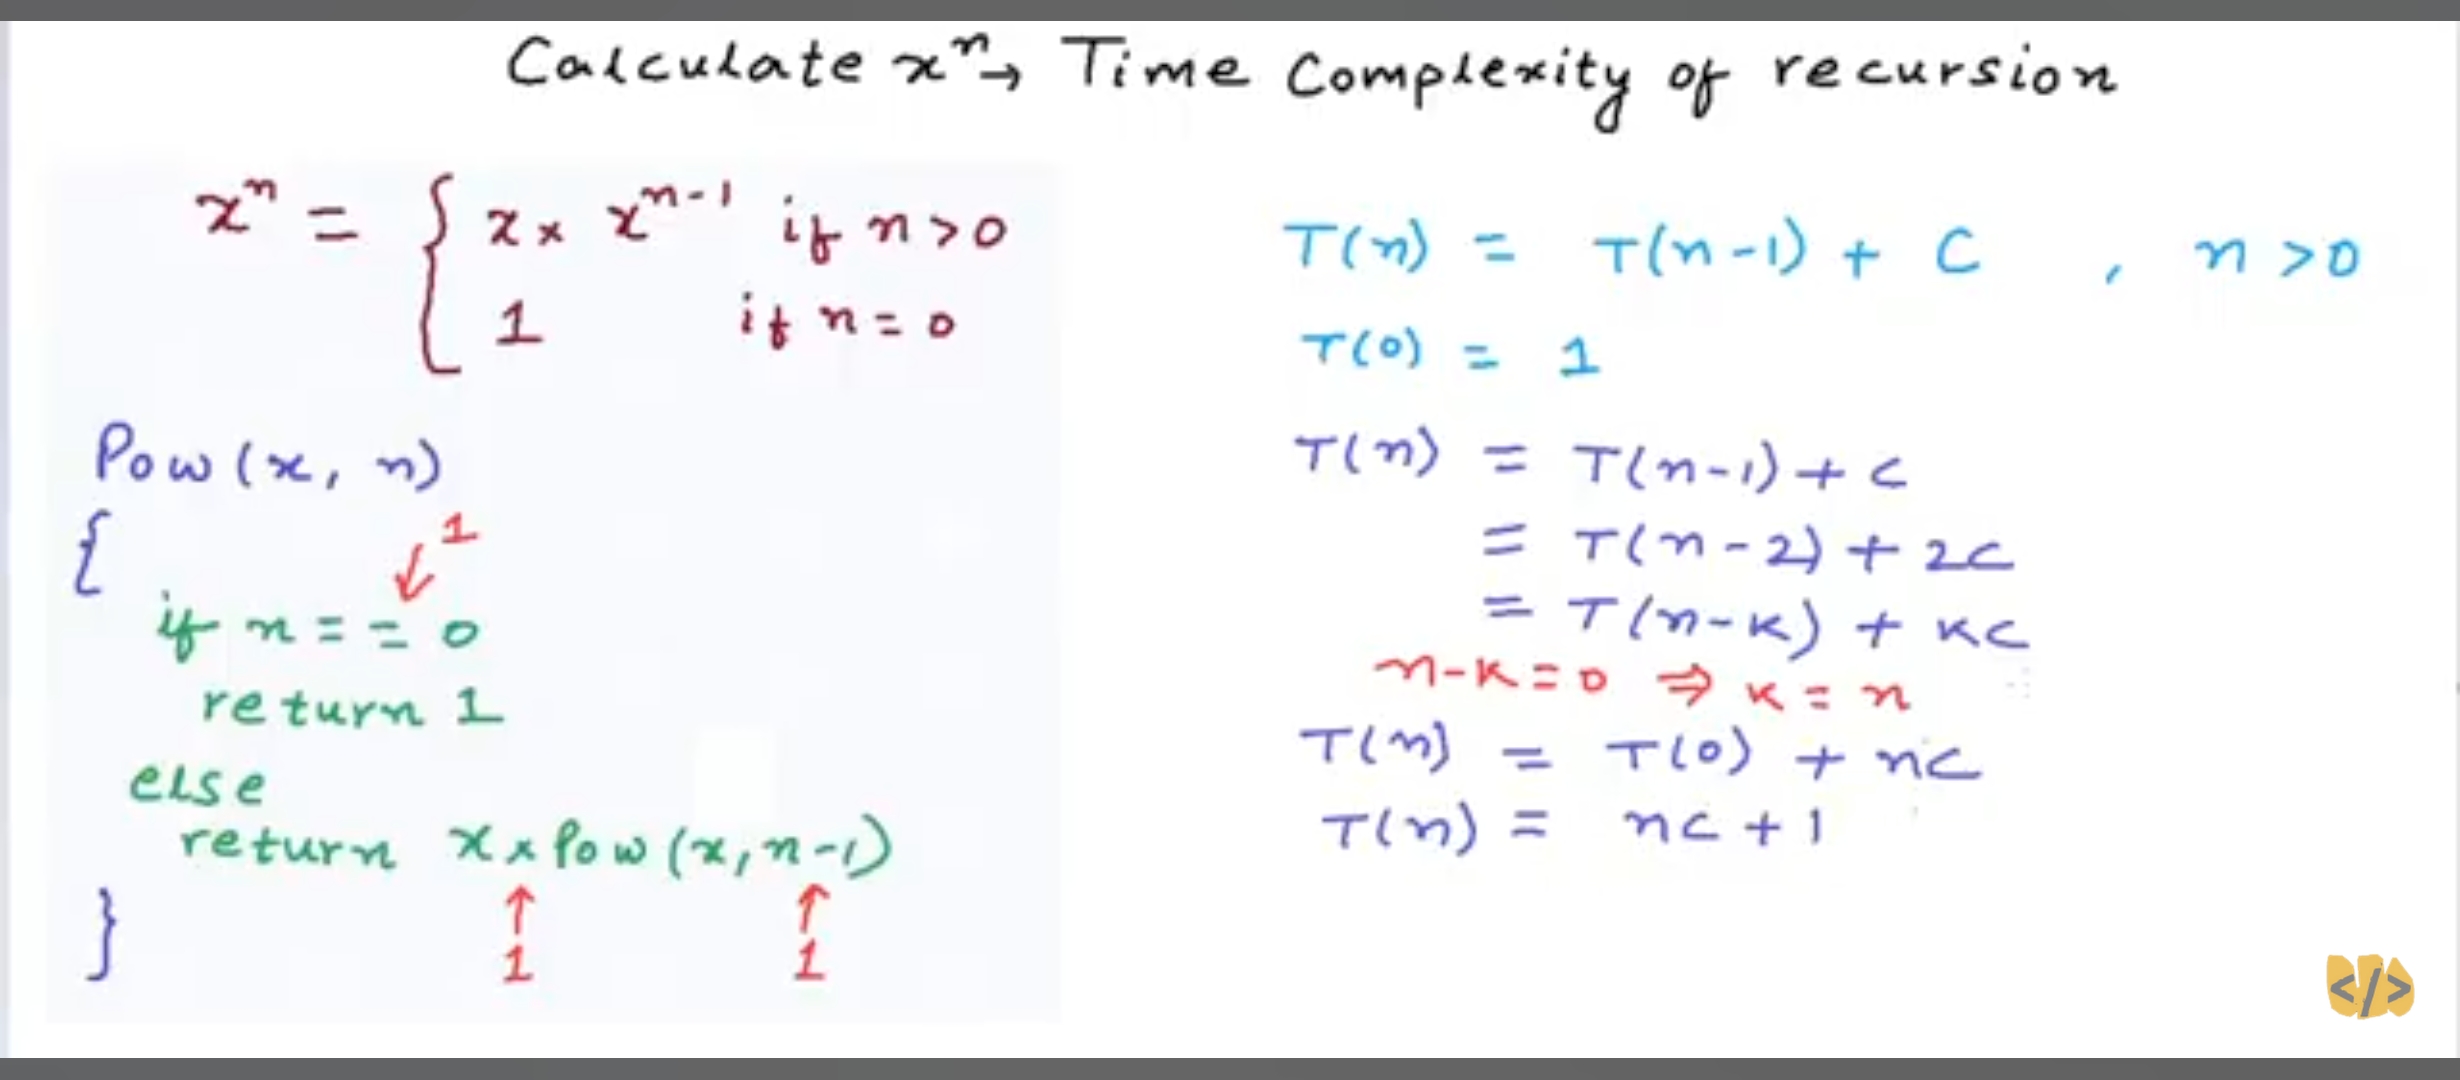 Calculate xⁿ → Time Complexity of recursion
xⁿ = { x × xⁿ⁻¹ if n > 0
1 if n = 0
Pow (x, n)
{
1
if n == 0
return 1
else
return x × Pow (x, n-1)
}
1 1
T(n) = T(n-1) + C , n > 0
T(0) = 1
T(n) = T(n-1) + C
= T(n-2) + 2C
= T(n-K) + KC
n-K = 0 ⇒ K = n
T(n) = T(0) + nC
T(n) = nC + 1
</>